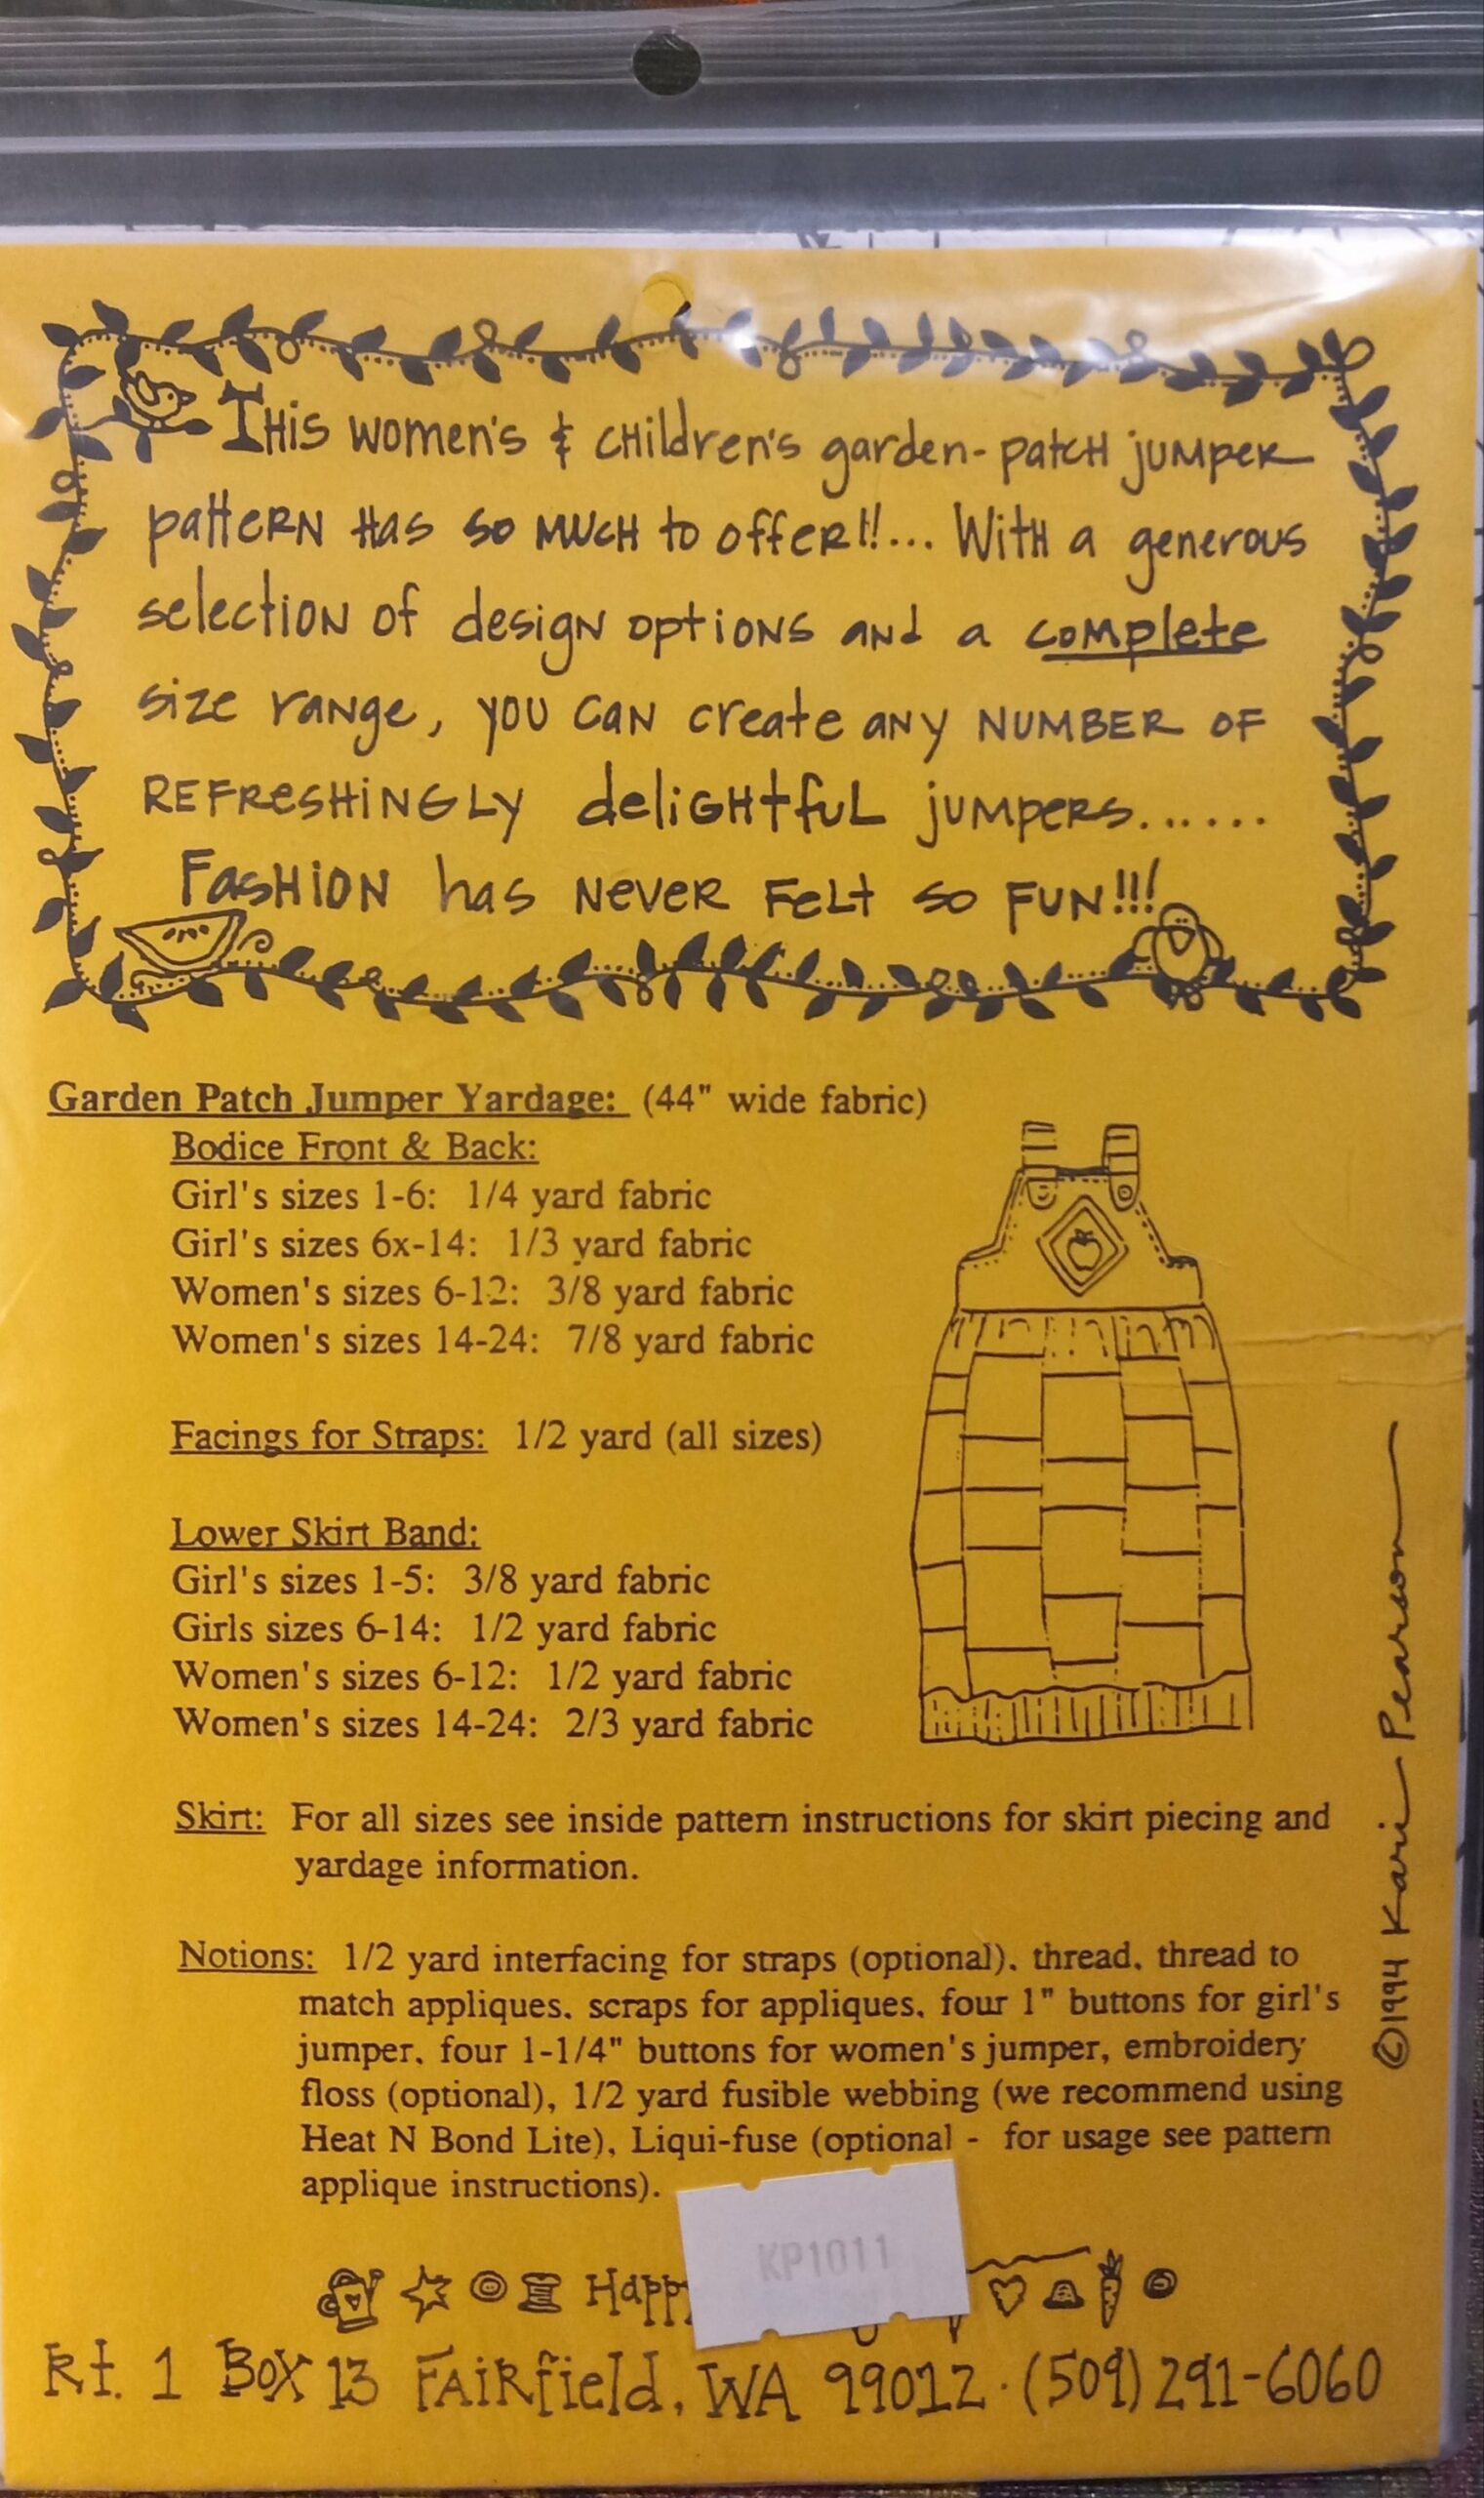 This women's & children's garden-patch jumper
pattern has so much to offer!!... With a generous
selection of design options and a complete
size range, you can create any NUMBER OF
REFRESHINGLY delightful jumpers......
Fashion has never felt so FUN!!!
Garden Patch Jumper Yardage: (44" wide fabric)
Bodice Front & Back:
Girl's sizes 1-6: 1/4 yard fabric
Girl's sizes 6x-14: 1/3 yard fabric
Women's sizes 6-12: 3/8 yard fabric
Women's sizes 14-24: 7/8 yard fabric
Facings for Straps: 1/2 yard (all sizes)
Lower Skirt Band:
Girl's sizes 1-5: 3/8 yard fabric
Girls sizes 6-14: 1/2 yard fabric
Women's sizes 6-12: 1/2 yard fabric
Women's sizes 14-24: 2/3 yard fabric
Skirt: For all sizes see inside pattern instructions for skirt piecing and
yardage information.
Notions: 1/2 yard interfacing for straps (optional), thread, thread to
match appliques, scraps for appliques, four 1" buttons for girl's
jumper, four 1-1/4" buttons for women's jumper, embroidery
floss (optional), 1/2 yard fusible webbing (we recommend using
Heat N Bond Lite), Liqui-fuse (optional - for usage see pattern
applique instructions).
©1994 Kari Pearson
KP1011
Rt. 1 Box 13 Fairfield, WA 99012 · (509) 291-6060